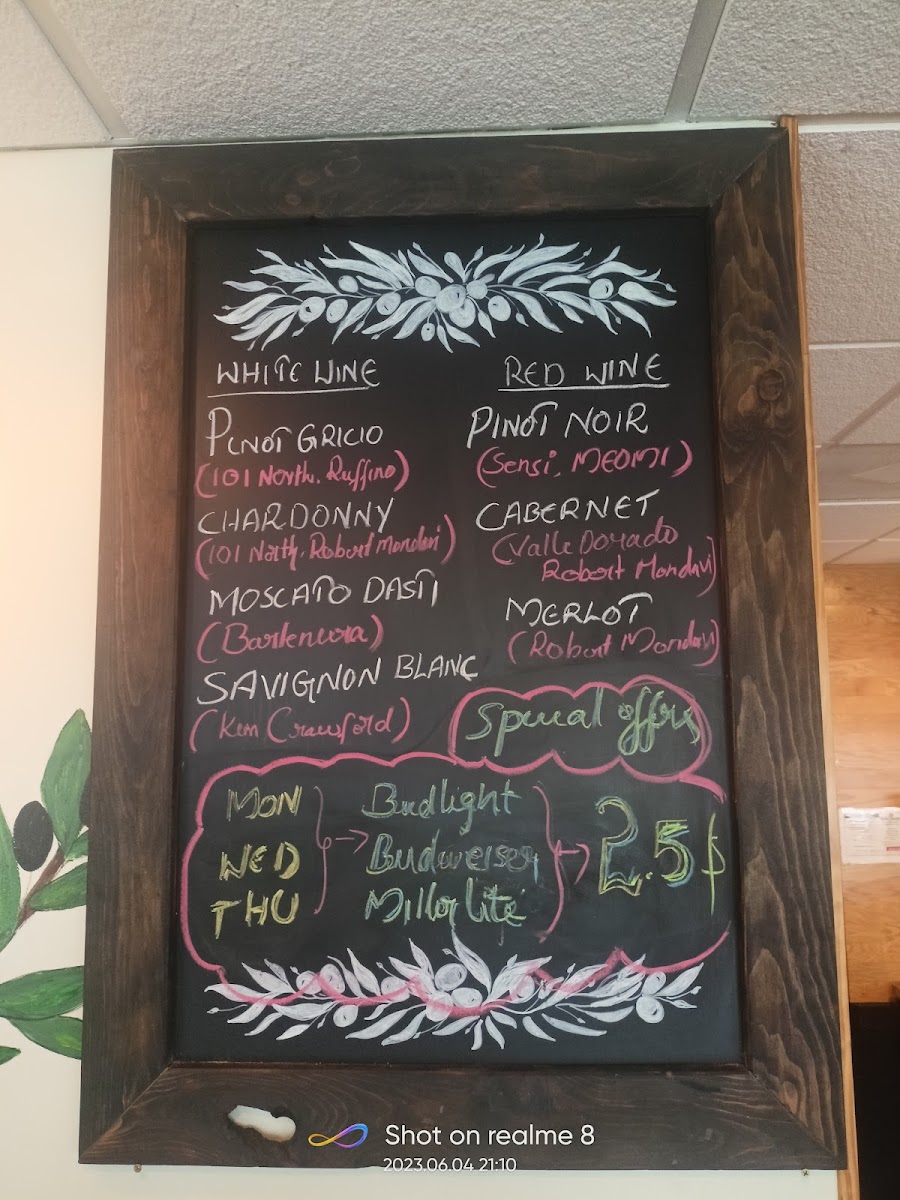 WHITE WINE
PINOT GRICIO
(101 North, Ruffino)
CHARDONNY
(101 North, Robert Mondavi)
MOSCATO DASTI
(Bartenura)
SAVIGNON BLANC
(Kim Crawford)
RED WINE
PINOT NOIR
(Sensi, MEOMI)
CABERNET
(Valle Dorado
Robert Mondavi)
MERLOT
(Robert Mondavi)
Special offers
MON Budlight
WED Budweiser 2.5 $
THU Miller lite
Shot on realme 8
2023.06.04 21:10